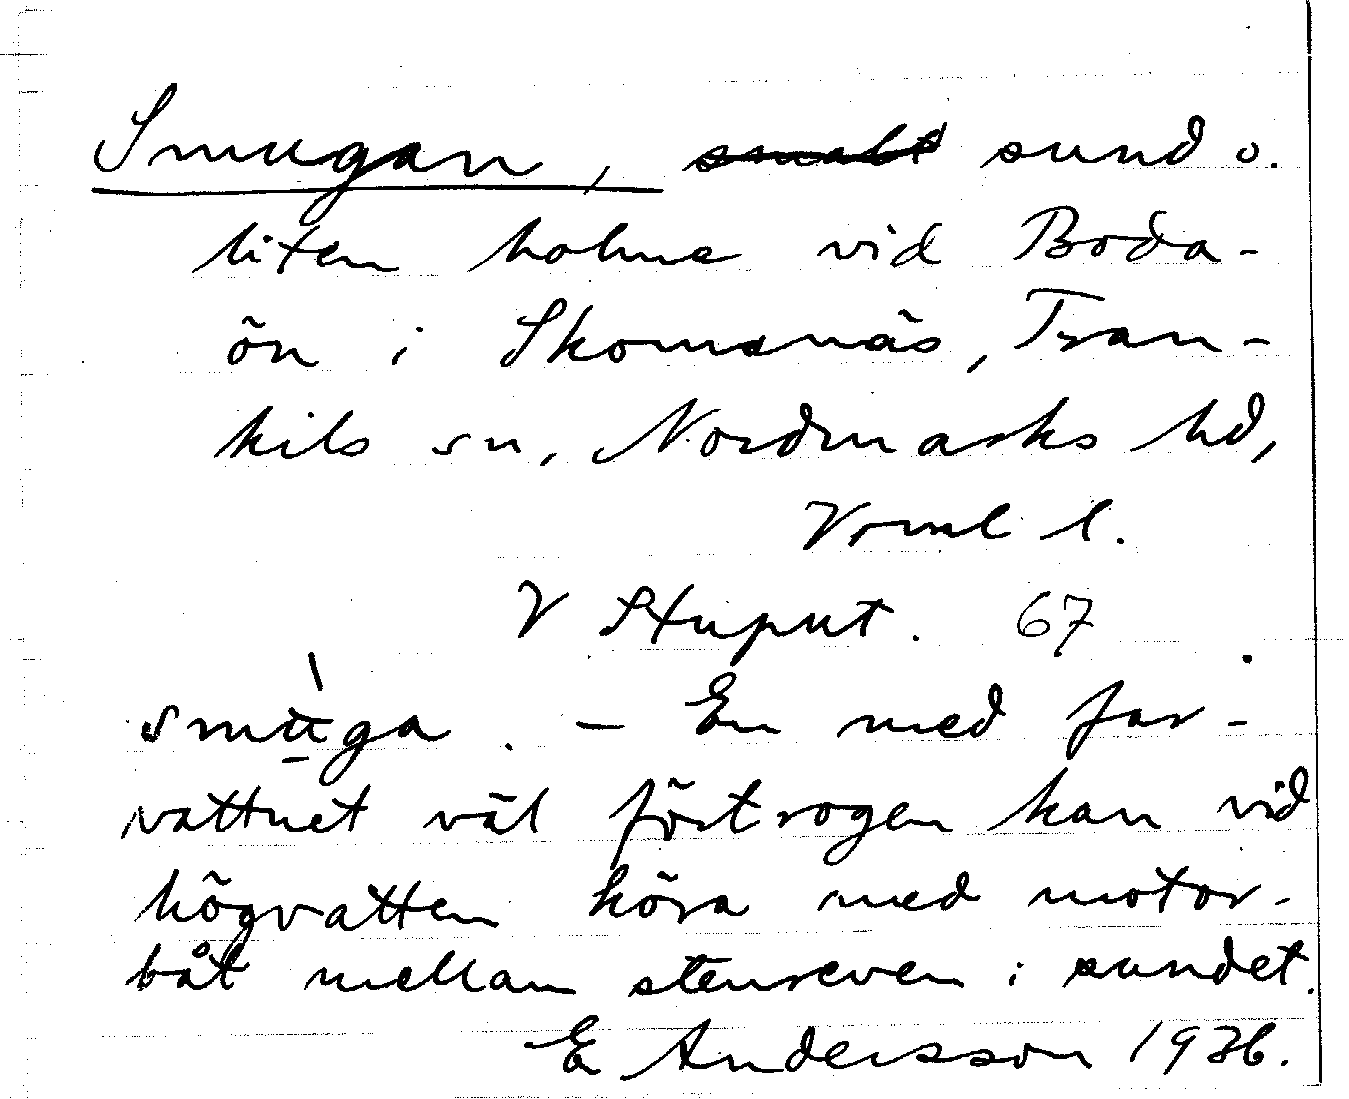 Smugan, smalt sund o.
liten holme vid Boda-
ön i Skomsnäs, Tran-
kils sn, Nordmarks hd,
Vrml l.
V Stuput. 67
smuga. - En med far-
vattnet väl förtrogen kan vid
högvatten köra med motor-
båt mellan stenreven i sundet.
E Andersson 1936.